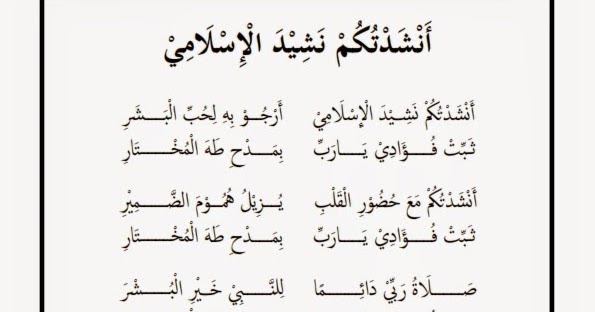 أَنْشَدْتُكُمْ نَشِيْدَ الْإِسْلَامِيْ
أَنْشَدْتُكُمْ نَشِيْدَ الْإِسْلَامِيْ أَرْجُوْ بِهِ لِحُبِّ الْبَشَرِ
ثَبِّتْ فُؤَادِيْ يَارَبِّ بِمَدْحِ طَهَ الْمُخْتَارِ
أَنْشَدْتُكُمْ مَعَ حُضُوْرِ الْقَلْبِ يُزِيْلُ هُمُوْمَ الضَّمِيْرِ
ثَبِّتْ فُؤَادِيْ يَارَبِّ بِمَدْحِ طَهَ الْمُخْتَارِ
صَلَاةُ رَبِّيْ دَائِمًا لِلنَّبِيْ خَيْرِ الْبُشْرَ